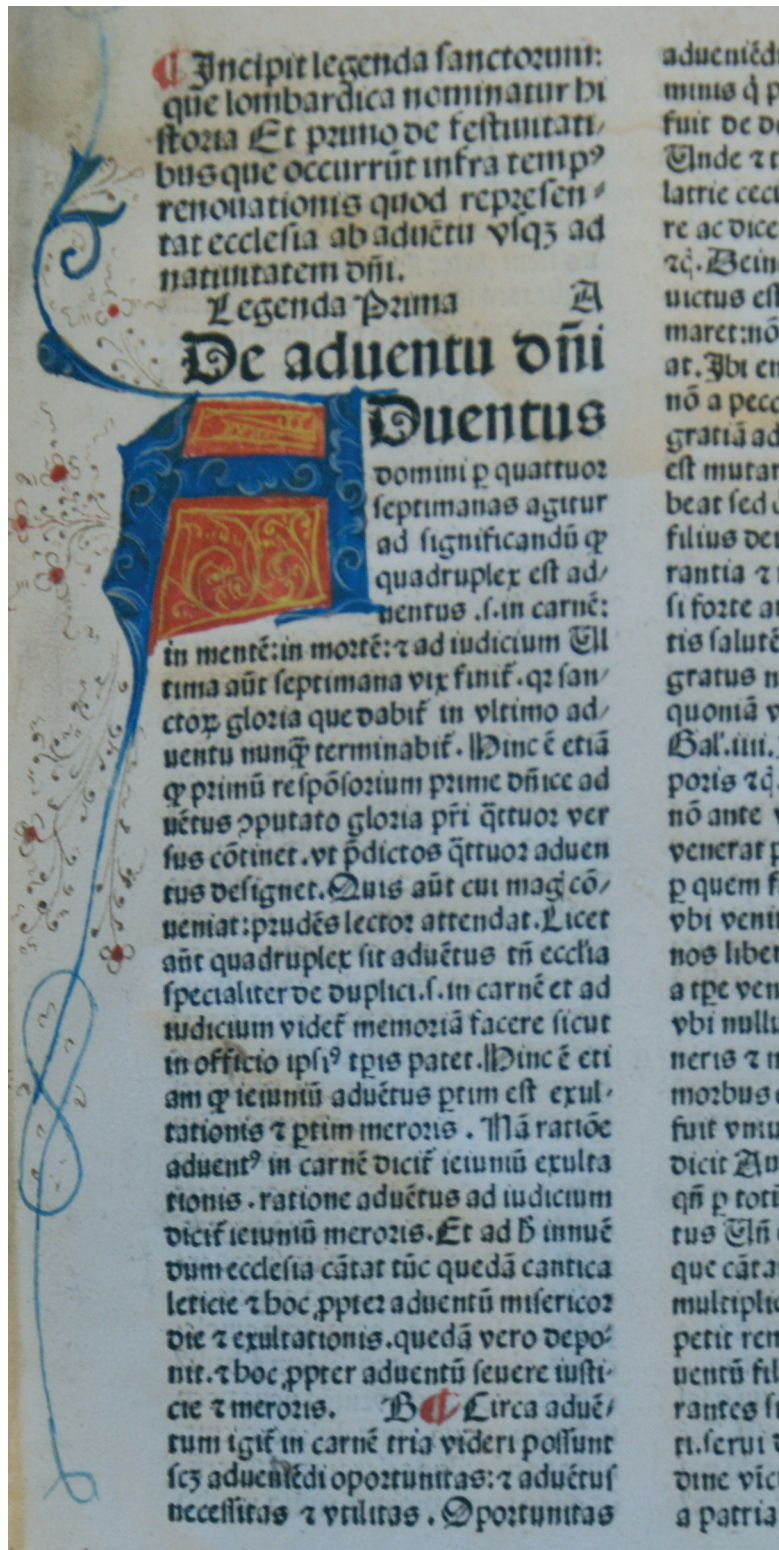 ¶ Incipit legenda sanctorum:
que lombardica nominatur hi
storia Et primo de festiuitati⸗
bus que occurrūt infra tempꝰ
renouationis quod represen⸗
tat ecclesia ab aduētu vsqꝫ ad
natiuitatem dñi.
Legenda Prima A
De aduentu dñi
ADuentus
domini ꝑ quattuor
septimanas agitur
ad significandū ꝙ
quadruplex est ad⸗
uentus .s. in carnē:
in mentē: in mortē: ⁊ ad iudicium Ul
tima aūt septimana vix finit᷑. qꝛ san⸗
ctoꝝ gloria que dabit᷑ in vltimo ad⸗
uentu nunꝙ̄ terminabit᷑. Hinc ē etiā
ꝙ primū respōsorium prime dñice ad
uētus ꝯputato gloria pr̄i q̄ttuor ver
sus cōtinet. vt p̄dictos q̄ttuor aduen
tus designet. Quis aūt cui mag̓ cō⸗
ueniat: prudēs lector attendat. Licet
aūt quadruplex sit aduētus tñ eccl̓ia
specialiter de duplici .s. in carnē et ad
iudicium videt᷑ memoriā facere sicut
in officio ipsiꝰ tp̄is patet. Hinc ē eti
am ꝙ ieiuniū aduētus ꝑtim est exul⸗
tationis ⁊ ꝑtim meroris. Nā ratiōe
aduentꝰ in carnē dicit᷑ ieiuniū exulta
tionis. ratione aduētus ad iudicium
dicit᷑ ieiuniū meroris. Et ad h̄ innuē
dum ecclesia cātat tūc quedā cantica
leticie ⁊ hoc ꝓpter aduentū misericor
die ⁊ exultationis. quedā vero depo⸗
nit. ⁊ hoc ꝓpter aduentū seuere iusti⸗
cie ⁊ meroris. B ¶ Circa aduē⸗
tum igit᷑ in carnē tria videri possunt
scꝫ adueniēdi oportunitas: ⁊ aduētus
necessitas ⁊ vtilitas. Oportunitas
adueniēd
minus q̄ p
fuit de d
Unde ⁊ t
latrie cec
re ac dice
⁊c̄. Dein
uictus est
maret: nō
at. Ibi en
nō a pecc
gratiā ad
est mutar
beat sed
filius dei
rantia ⁊
si forte a
tis salutē
gratus n
quoniā v
Gal̓. iiii.
poris ⁊c̄.
nō ante v
venerat p
ꝑ quem f
vbi veni
nos liber
a tp̄e ven
vbi nullu
neris ⁊ n
morbus
fuit vniu
dicit Au
qñ ꝑ toti
tus Uñ
que cāta
multiplic
petit ren
uentū fil
rantes s
ti. serui
dine vīc
a patria